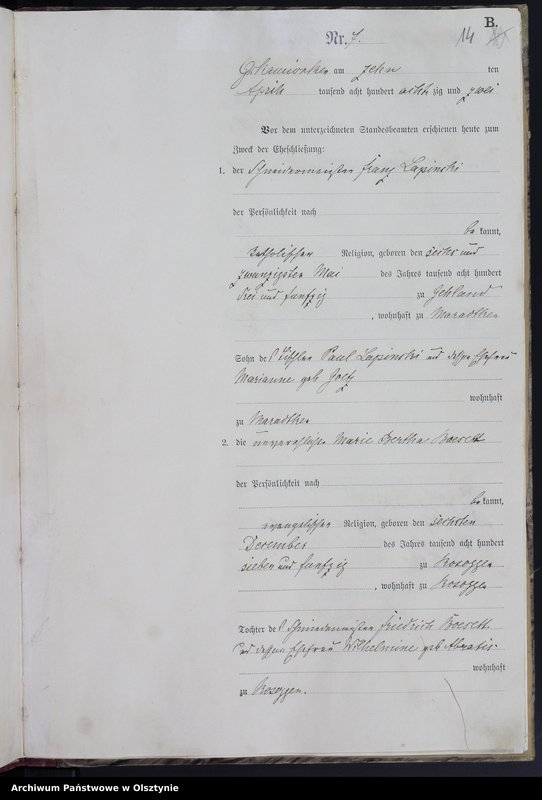 B.
Nr. 7. 14
am zehn ten
April tausend acht hundert achtzig und zwei
Vor dem unterzeichneten Standesbeamten erschienen heute zum
Zweck der Eheschließung:
1. der Schneidermeister Franz Lapinski
der Persönlichkeit nach
be kannt,
katholischer Religion, geboren den sechs und
zwanzigsten Mai des Jahres tausend acht hundert
drei und funfzig zu
, wohnhaft zu Maradtken
Sohn des Paul Lapinski und dessen Ehefrau
Marianne geb
wohnhaft
zu Maradtken
2. die unverehelichte Marie Bertha
der Persönlichkeit nach
be kannt,
evangelischer Religion, geboren den sechsten
December des Jahres tausend acht hundert
sieben und funfzig zu Rosoggen
, wohnhaft zu Rosoggen
Tochter des Friedrich
und dessen Ehefrau Wilhelmine geb
wohnhaft
zu Rosoggen.
Archiwum Państwowe w Olsztynie